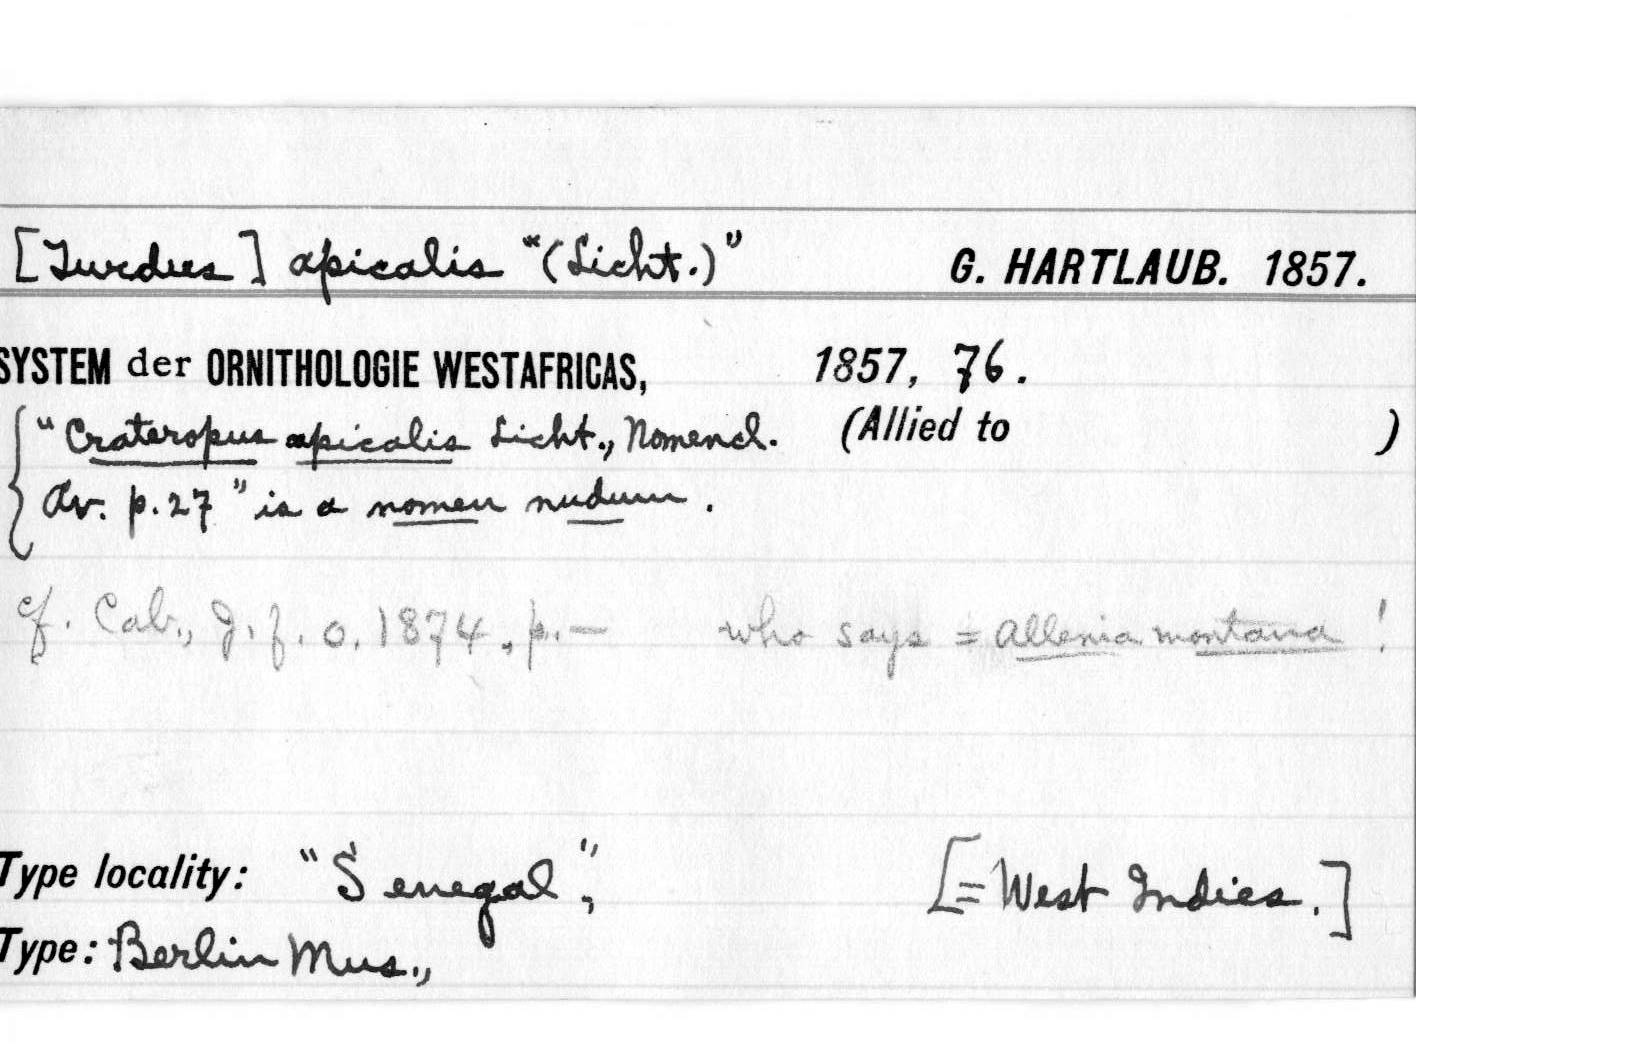 [Turdus] apicalis "(Licht.)" G. HARTLAUB. 1857.
SYSTEM der ORNITHOLOGIE WESTAFRICAS, 1857, 76.
"Crateropus apicalis Licht., Nomencl. (Allied to )
Av. p. 27" is a nomen nudum.
cf. Cab., J. f. O. 1874, p. — who says = Allenia montana!
Type locality: "Senegal", [= West Indies.]
Type: Berlin Mus.,